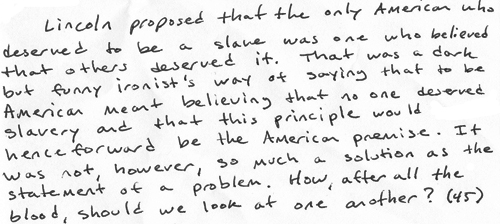 Lincoln proposed that the only American who
deserved to be a slave was one who believed
that others deserved it. That was a dark
but funny ironist's way of saying that to be
American meant believing that no one deserved
slavery and that this principle would
henceforward be the American premise. It
was not, however, so much a solution as the
statement of a problem. How, after all the
blood, should we look at one another? (45)